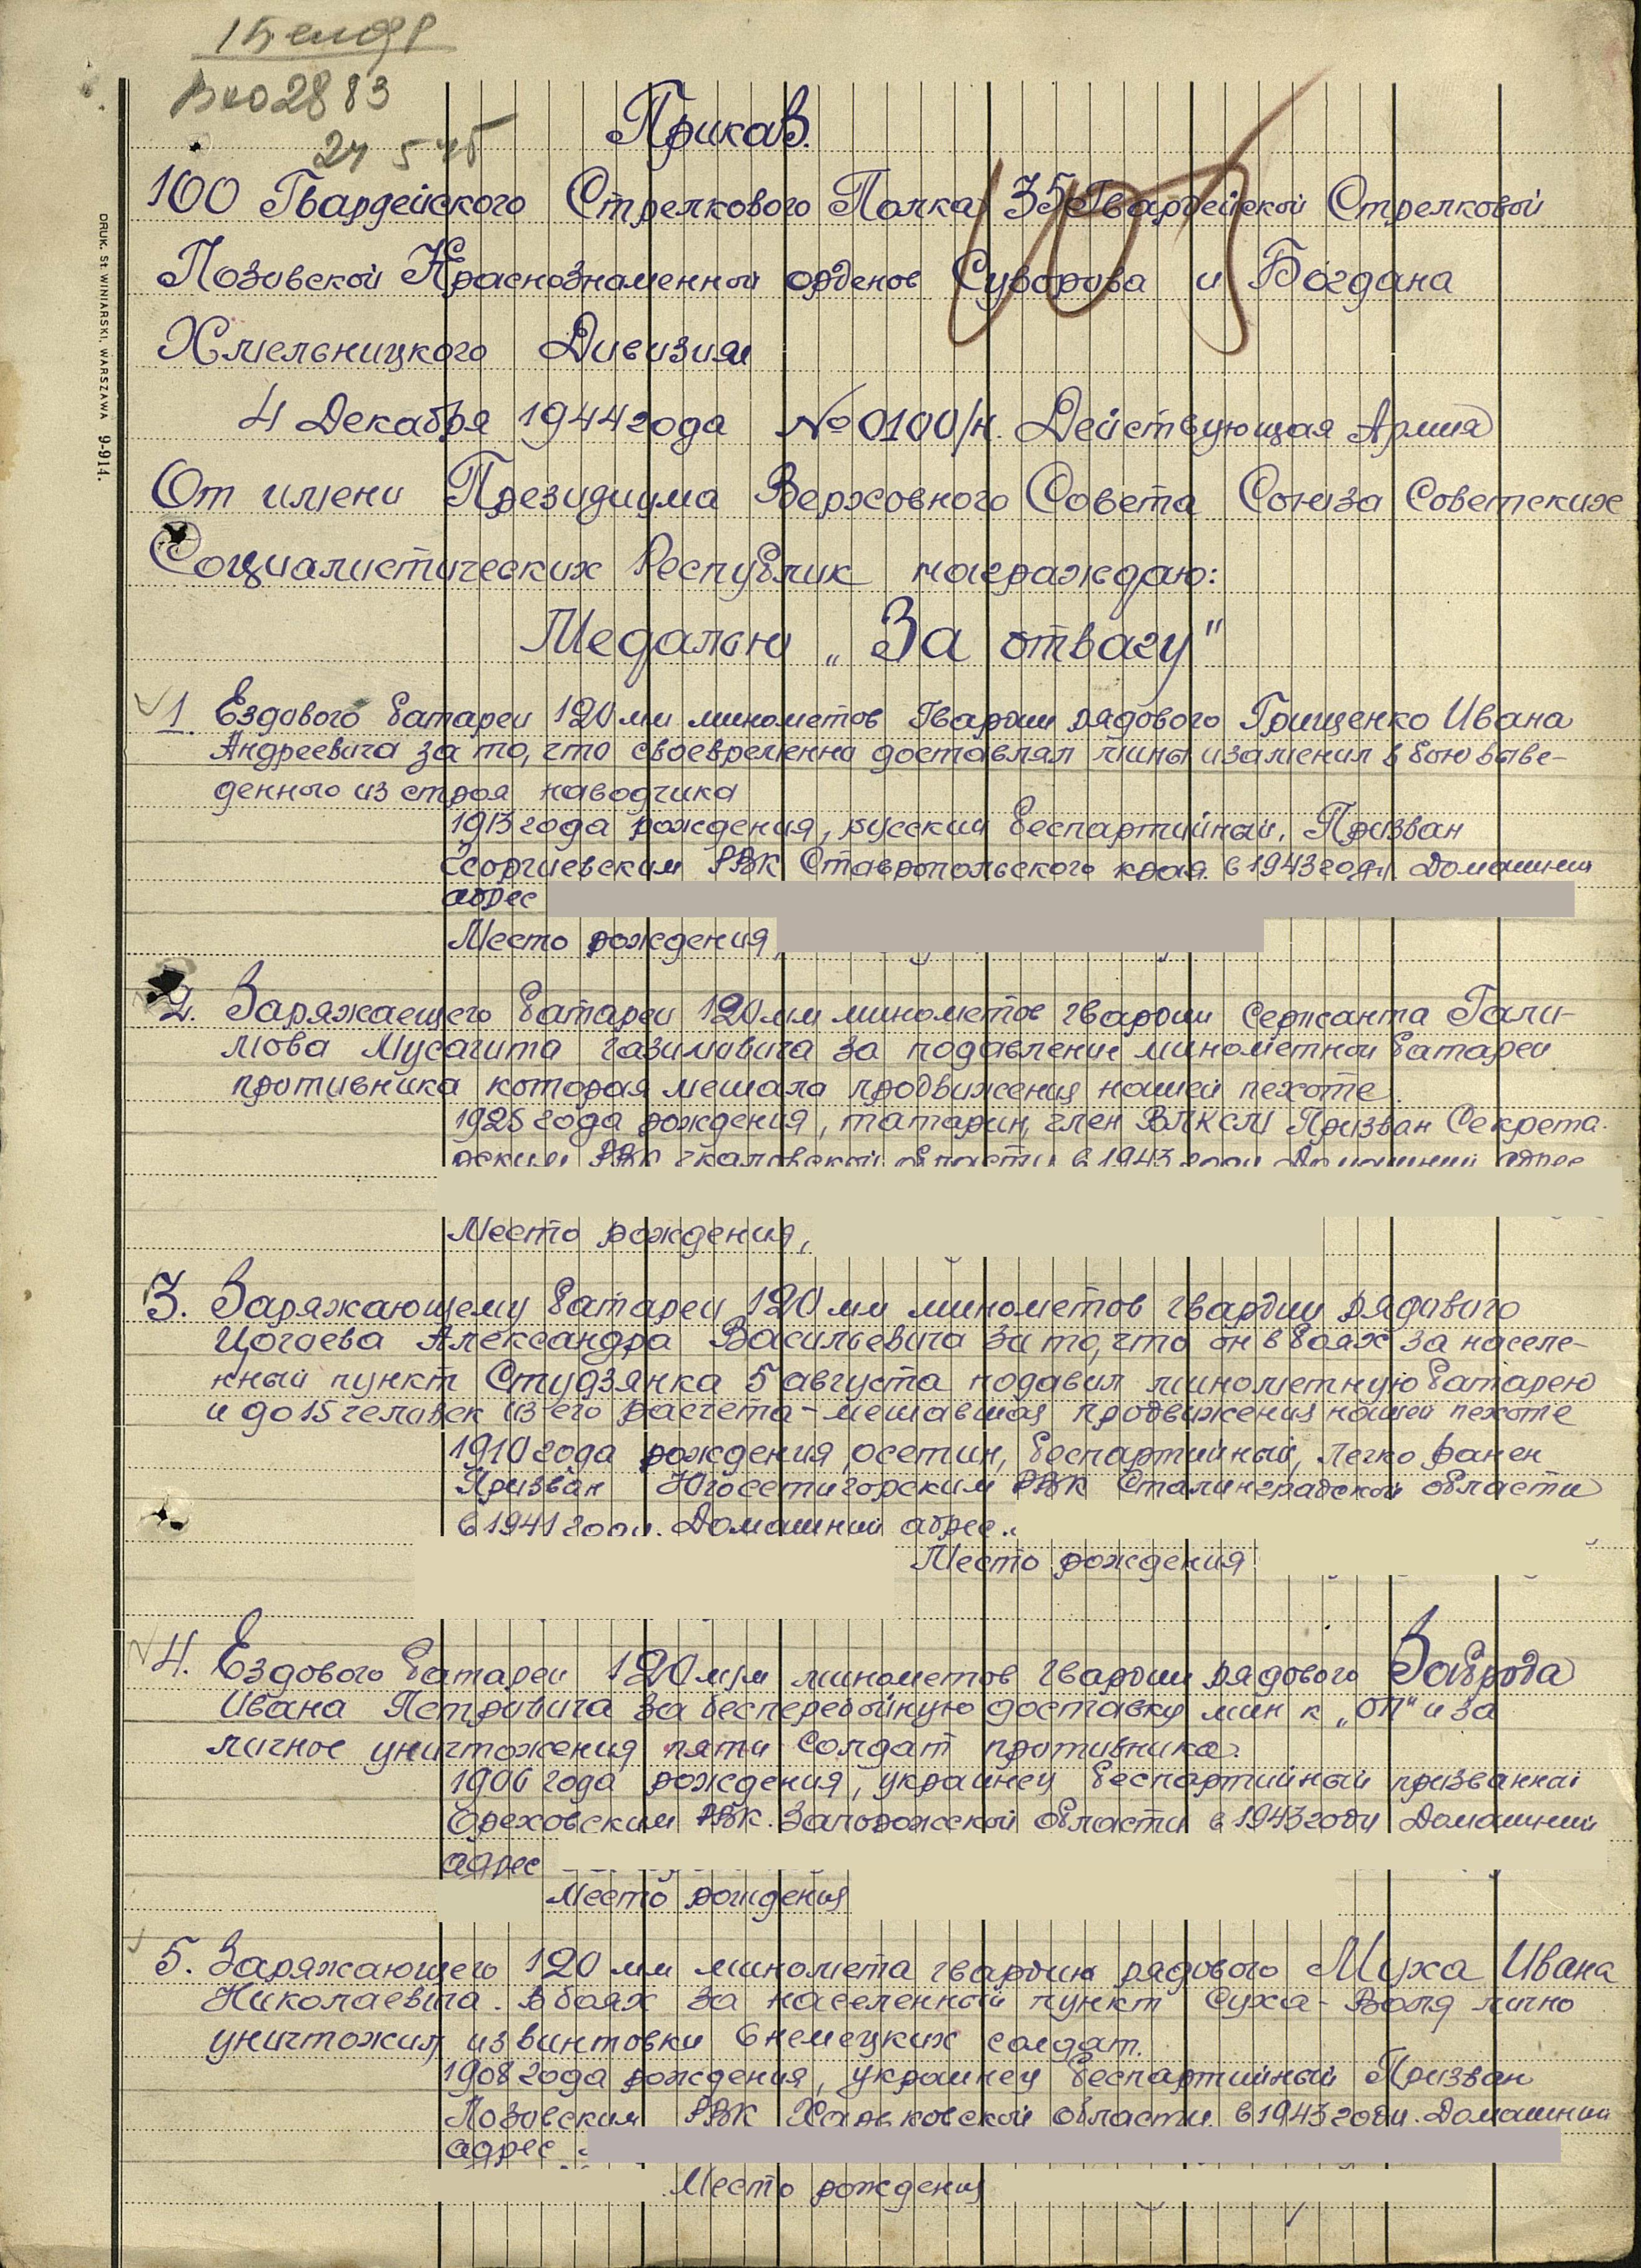 Вх02883
24 5 45
Приказ.
100 Гвардейского Стрелкового Полка 35 Гвардейской Стрелковой
Лозовской Краснознаменной орденов Суворова и Богдана
Хмельницкого Дивизии
4 Декабря 1944 года № 0100/н. Действующая Армия
От имени Президиума Верховного Совета Союза Советских
Социалистических Республик награждаю:
Медалью „За отвагу"
1. Ездового батареи 120 мм минометов Гвардии рядового Грищенко Ивана
Андреевича за то, что своевременно доставлял мины и заменил в бою выве-
денного из строя наводчика
1913 года рождения, русский беспартийный. Призван
Георгиевским РВК Ставропольского края. в 1943 году. Домашний
адрес
Место рождения,
2. Заряжаещего батареи 120 мм минометов гвардии сержанта Гали-
мова Мусагита Газимовича за подавление минометной батареи
противника которая мешала продвижения нашей пехоте.
1925 года рождения, татарин, член ВЛКСМ Призван Секрета-
рским РВК Чкаловской области в 1943 году Домашний адрес
Место рождения,
3. Заряжающему батареи 120 мм минометов гвардии рядового
Цогоева Александра Васильевича за то, что он в боях за населе-
нный пункт Студзянка 5 августа подавил минометную батарею
и до 15 человек из его расчета - мешавшая продвижения нашей пехоте
1910 года рождения осетин, беспартийный, легко ранен
Призван Югосетигорским РВК Сталинградской области
в 1941 году. Домашний адрес..
Место рождения
4. Ездового батареи 120 мм минометов гвардии рядового Заброда
Ивана Петровича за бесперебойную доставку мин к „ОП" и за
личное уничтожения пяти солдат противника.
1906 года рождения, украинец беспартийный призванный
Ореховским РВК. Запорожской области в 1943 году Домашний
адрес
Место рождения
5. Заряжающего 120 мм миномета гвардии рядового Муха Ивана
Николаевича. В боях за населенный пункт Суха-Воля лично
уничтожил из винтовки 6 немецких солдат.
1908 года рождения, украинец беспартийный Призван
Лозовским РВК Харьковской области. в 1943 году. Домашний
адрес
Место рождения
DRUK. St. WINIARSKI, WARSZAWA 9-914.